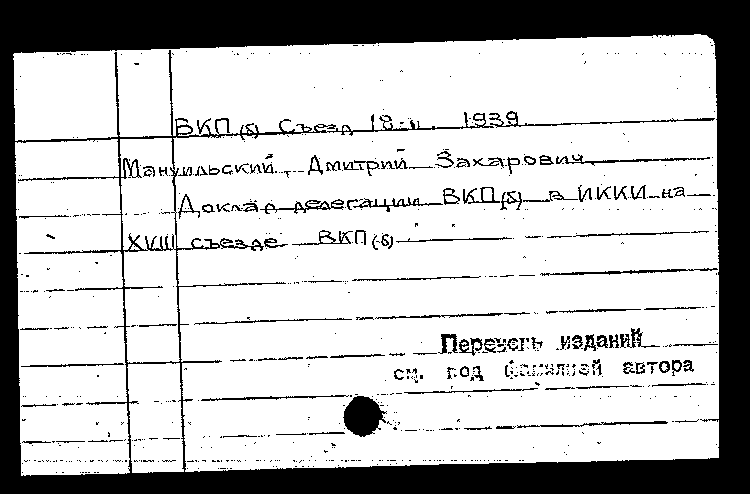 ВКП(б) Съезд 18-й. 1939.
Мануильский, Дмитрий Захарович.
Доклад делегации ВКП(б) в ИККИ на
XVIII съезде ВКП(б)
Перечень изданий
см. под фамилией автора